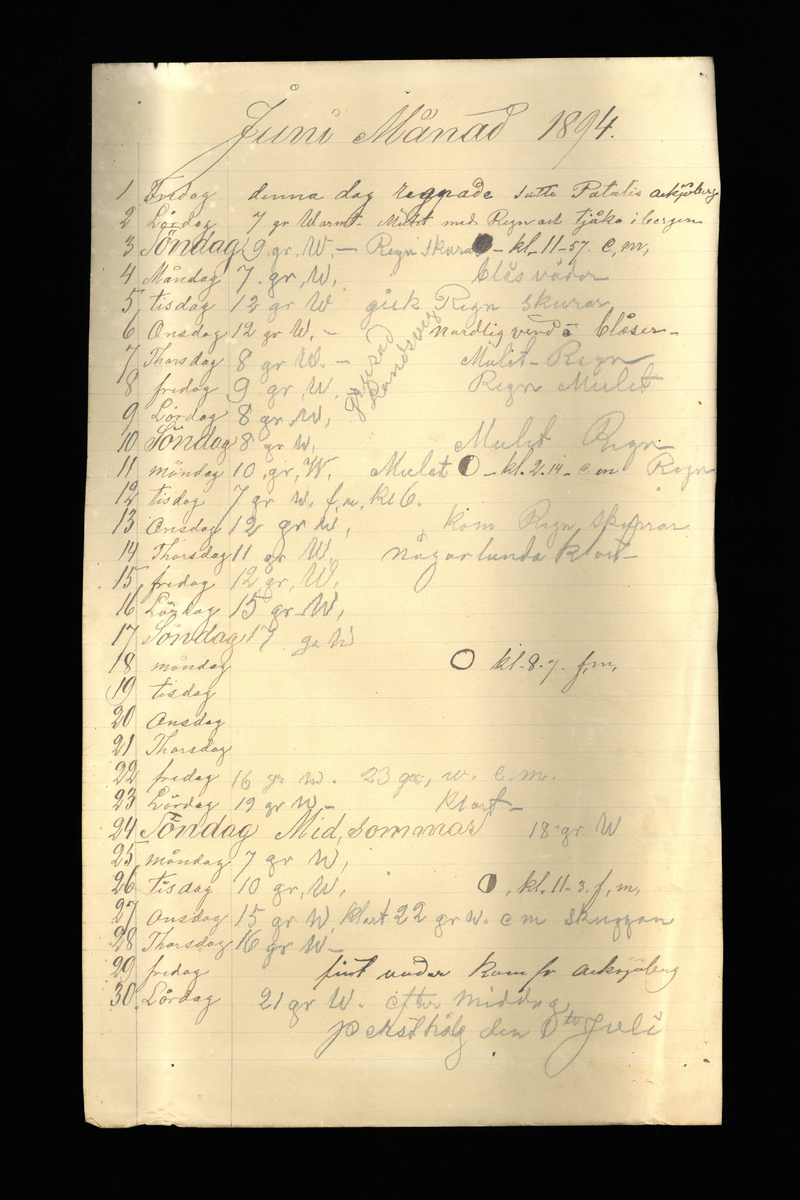 Juni Månad 1894.
1 Fredag denna dag regnade satte Potatis
2 Lördag 7 gr Warmt- Mulet med Regn och tjåka i bergen
3 Söndag 9 gr, W, — Regn skurar - kl. 11-57. e, m,
4 Måndag 7. gr, W, blås väder
5 tisdag 12 gr W gick Regn skurar
6 Onsdag 12 gr W. - nordlig vend blåser-
7 Thorsdag 8 gr W. - Mulet- Regn
8 fredag 9 gr, W. Regn Mulet
9 Lördag 8 gr W,
10 Söndag 8 gr W, Mulet Regn
11 måndag 10, gr, W. Mulet - kl. 2.14 - e m Regn
12 tisdag 7 gr w. f, m, kl 6.
13 Onsdag 12 gr W, kom Regn skurar
14 Thorsdag 11 gr W, någorlunda klart-
15 fredag 12 gr, W,
16 Lördag 15 gr W,
17 Söndag 17 gr W
18 måndag kl-8.7- f, m,
19 tisdag
20 Onsdag
21 Thorsdag
22 fredag 16 gr w. 23 gr, w. e. m.
23 Lördag 19 gr W,- Klart-
24 Söndag Mid, sommar 18 gr W
25 måndag 7 gr W,
26 tisdag 10 gr, W, , kl. 11-3. f, m,
27 Onsdag 15 gr W, klart 22 gr w. e m skuggan
28 Thorsdag 16 gr W-
29 fredag fint väder kom fr
30 Lördag 21 gr W. efter middag
den Juli